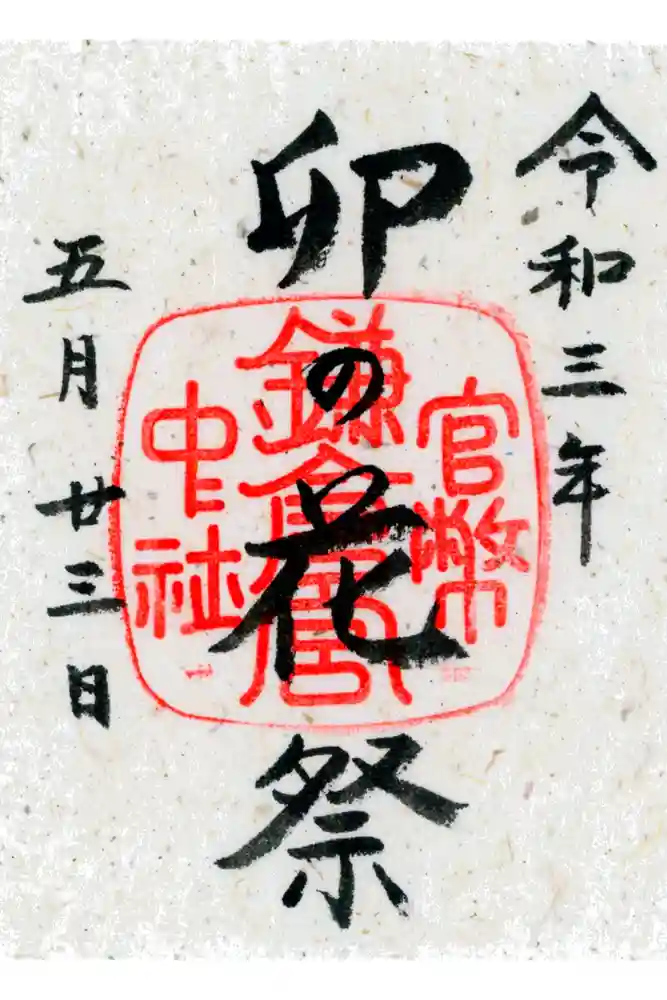 令和三年
卯の花祭
五月廿三日
官幣
鎌倉宮
中社